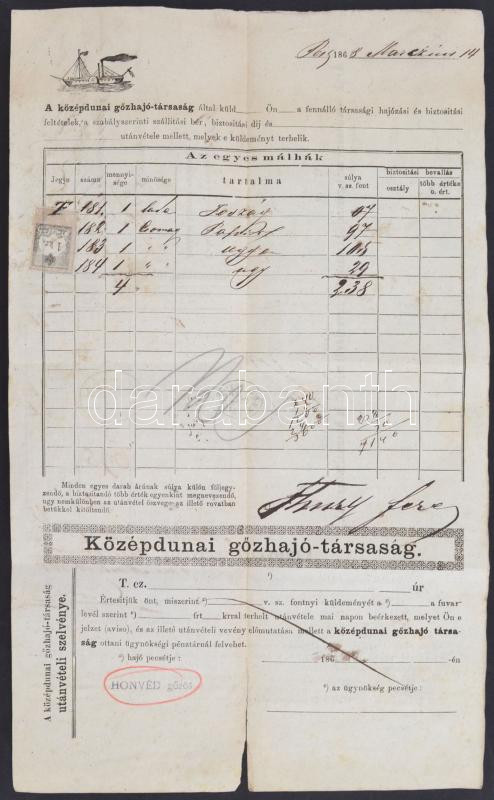 Pest 1868 Marczius 14
A középdunai gőzhajó-társaság által küld Ön a fennálló társasági hajózási és biztositási
feltételek, a szabályszerinti szállitási bér, biztositási dij és
utánvétele mellett, melyek e küldeményt terhelik.
Az egyes málhák
Jegje száma mennyi-sége minősége tartalma súlya v. sz. font biztositási osztály bevallás több értéke o. ért.
F 181. 1 láda 67
182 1 Csomag 97
183 1 " " ugyan
184 1 " " ugy 29
4 238
darabanth
Minden egyes darab árúnak súlya külön följegy-
zendő, a biztositandó több érték egyenkint megnevezendő,
úgy nemkülönben az utánvétel összege az illető rovatban
betűkkel kitöltendő.
Középdunai gőzhajó-társaság.
A középdunai gőzhajó-társaság
utánvételi szelvénye.
T. cz. úr
Értesitjük önt, miszerint v. sz. fontnyi küldeményét a a fuvar-
levél szerint frt krral terhelt utánvétele mai napon beérkezett, melyet Ön e
jelzet (aviso), és az illető utánvételi vevény előmutatása mellett a középdunai gőzhajó társa-
ság ottani ügynökségi pénztárnál felvehet.
186 -én
*) hajó pecsétje :
HONVÉD gőzös
*) az ügynökség pecsétje :